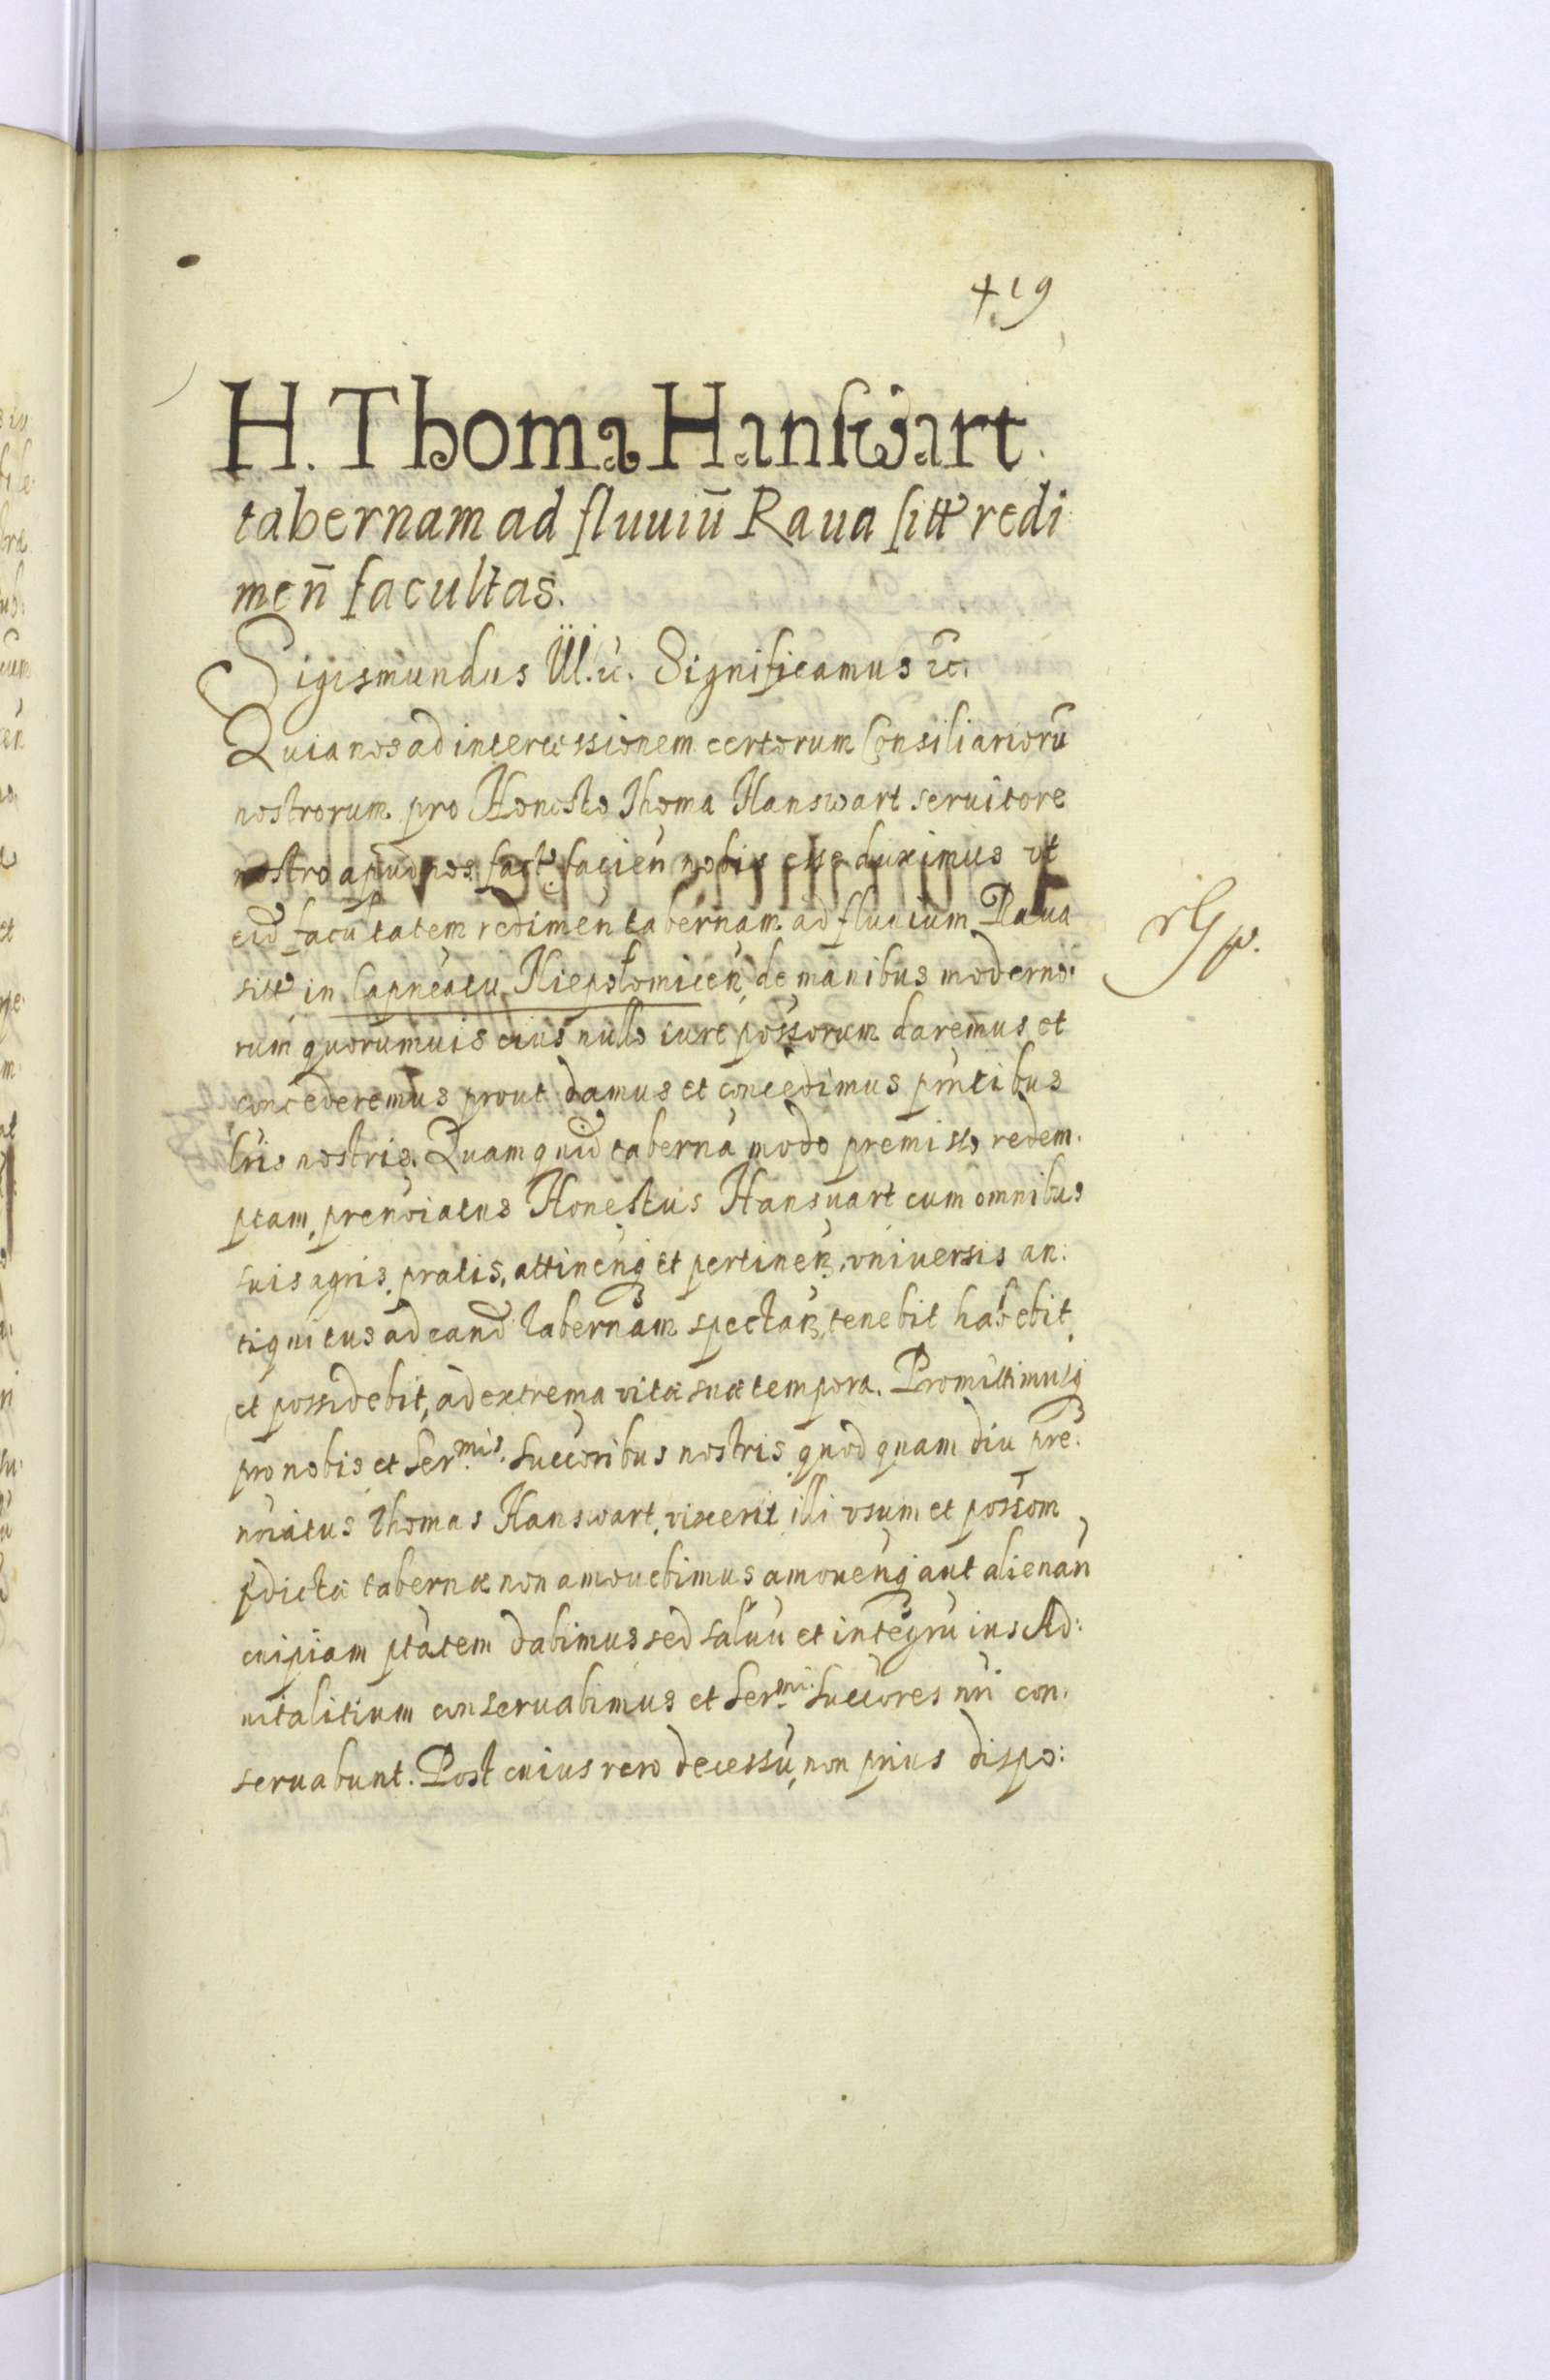 419
H. Thoma Hanswart
tabernam ad fluuiū Raua sitt redi
men̄ facultas.
Sigismundus III. &. Significamus &c.
Quia nos ad intercessionem certorum Consiliariorū
nostrorum pro Honesto Thoma Hanswart seruitore
nostro apud nos fact. facien̄ nobis esse duximus vt
eid facultatem redimen tabernam ad fluuium Raua
sitt in Capneatu Niepolomicen̄ de manibus moderno:
rum quorumuis eius nullo iure possorum daremus et
concederemus prout damus et concedimus pn̄tibus
lr̄is nostris. Quam quid tabernā modo premisso redem:
ptam, prenoiatus Honestus Hansuart cum omnibus
suis agris, pratis, attinenq et pertinen, vniuersis an:
tiquitus ad eand tabernam spectan, tenebit habebit
et possidebit, ad extrema vitæ suæ tempora. Promittimusq
pro nobis et Ser.mis Succoribus nostris quod quam diu pre:
nn̄atus Thomas Hanswart, vixerit illi vsum et possom
pdictæ tabernæ non amouebimus amouenq aut alienan̄
cuipiam ptātem dabimus sed saluū et integrū ius Ad:
uitalitium conseruabimus et Ser.mi Succores nr̄i con:
seruabunt. Post cuius vero decessū, non prius dispo: